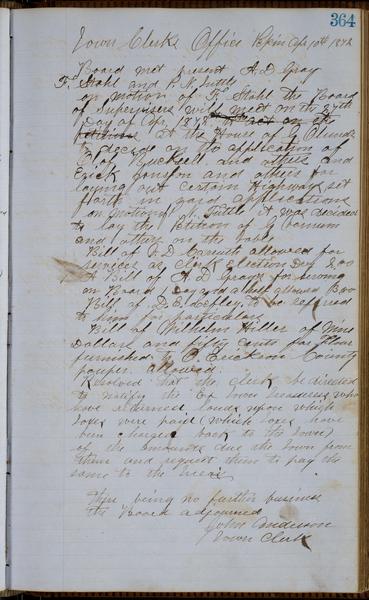 364
Town Clerks Office Pepin Ap 10th 1878
Board met present A. D. Gray
F. Stahl and P. N. Tuttle
on motion of F. Stahl the Board
of Supervisors will meet on the 27th
Day of Ap. 1878
at the House of
to decide on the application of
Olof and others and
Erick Jonson and others for
laying out certain Highways set
forth in said applications
on motion Tuttle it was decided
to lay the petition of
and others on the table
Bill of allowed for
services as Clerk Election Day 2.00
A Bill of A. D. Gray for serving
on Board 1 Day and a half allowed
Bill of to be referred
to him for particulars
Bill of Wilhelm Hiller of Nine
Dollars and fifty Cents for Flour
furnished to Erickson County
pauper. allowed
Resolved that the Clerk be directed
to notify the Ex Town Treasurers who
have returned lands upon which
taxes were paid (which taxes have
been charged back to the Town)
of the amounts due the Town from
them and request them to pay the
same to the
There being no further business
the Board adjourned
John Anderson
Town Clerk